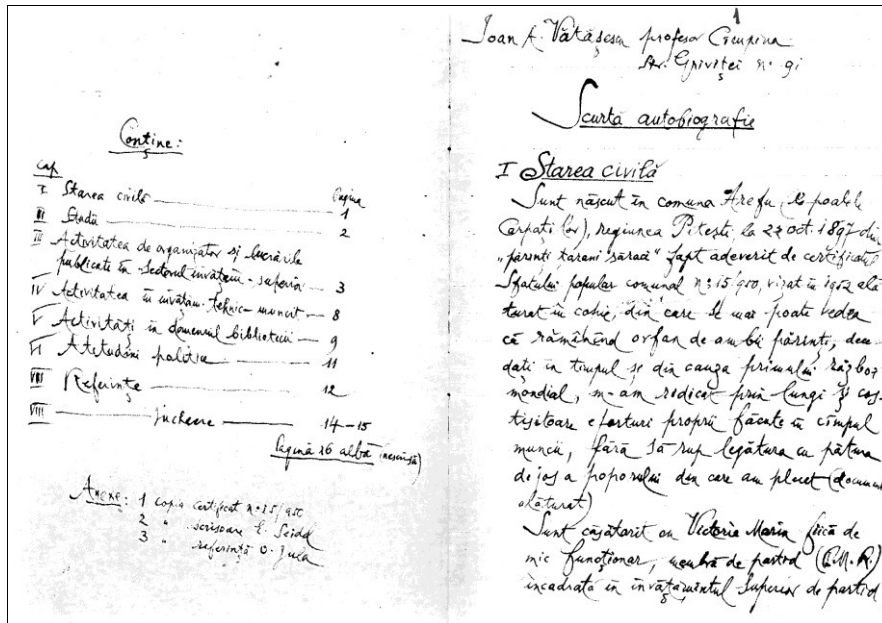 Conține:
Cap Pagina
I Starea civilă 1
II Studii 2
III Activitatea de organizator și lucrările
publicate în sectorul învățăm. superior 3
IV Activitatea în învățăm. tehnic-muncit. 8
V Activități în domeniul bibliotecii 9
VI Atitudini politice 11
VII Referințe 12
VIII Încheere 14-15
Pagina 16 albă (nescrisă)
Anexe: 1 copia certificat nº 15/950
2 " scrisoare C. Seidel
3 " referință O. Jula
1
Ioan A. Vătășescu profesor
Str. Griviței nº 91
Scurtă autobiografie
I Starea civilă
Sunt născut în comuna Arefu (la poalele
Carpaților), regiunea Pitești la 22 oct. 1897 din
„părinți țărani săraci" fapt adeverit de certificatul
Sfatului popular comunal nº 15/950, vizat în 1952 ală
turat în copie, din care se mai poate vedea
că rămînînd orfan de ambii părinți, dece
dați în timpul și din cauza primului război
mondial, m-am ridicat prin lungi și cos-
tisitoare eforturi proprii făcute în cîmpul
muncii, fără să rup legătura cu pătura
de jos a poporului din care am plecat (document
alăturat)
Sunt căsătorit cu Victoria Marin fiică de
mic funcționar, membră de partid (P.M.R.)
încadrată în învățămîntul superior de partid